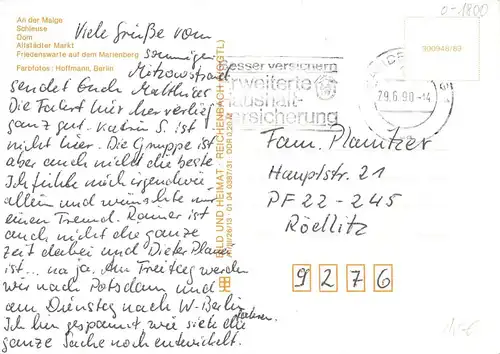 An der Malge
Schleuse
Dom
Altstädter Markt
Friedenswarte auf dem Marienberg
Farbfotos: Hoffmann, Berlin
Viele Grüße vom
sonnigen
Mitzowstrand
sendet Euch Matthias
Die Fahrt hier her verlief
ganz gut. Katrin S. ist
nicht hier. Die Gruppe ist
aber auch nicht die beste
Ich fühle mich irgendwie
allein und wünschte mir
einen Freund. Rainer ist
auch nicht die ganze
Zeit dabei und Dieter
ist... na ja. Am Freitag werden
wir nach Potsdam und
am Dienstag nach W-Berlin
fahren.
Ich bin gespannt, wie sich die
ganze Sache noch entwickelt.
BILD UND HEIMAT · REICHENBACH (VOGTL)
01 04 0387/31 DDR 0,20 M
0-1800
990948/89
besser versichern
erweiterte
Haushalt-
versicherung
29.6.90-14
Fam. Planitzer
Hauptstr. 21
PF 22-245
Röllitz
9276